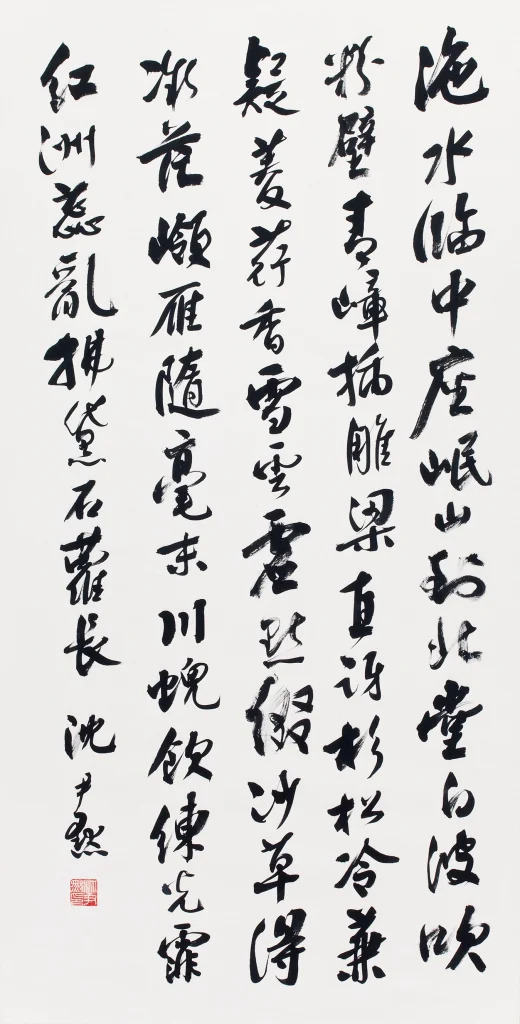 沲水臨中座岷山到北堂白波吹
粉壁青嶂插雕梁直訝杉松冷兼
疑菱荇香雪雲虛點綴沙草得
微茫嶺雁隨毫末川蜺飲練光霏
紅洲蕊亂拂黛石蘿長 沈尹默